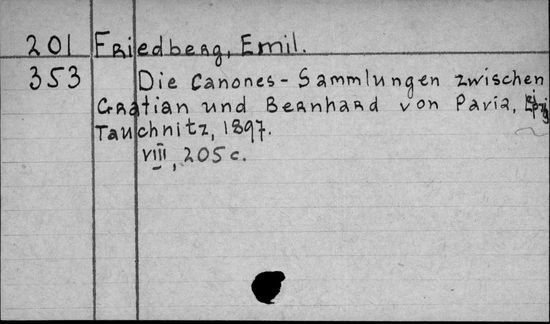 201 Friedberg, Emil.
353 Die Canones-Sammlungen zwischen
Gratian und Bernhard von Pavia,
Tauchnitz, 1897.
VIII, 205 c.